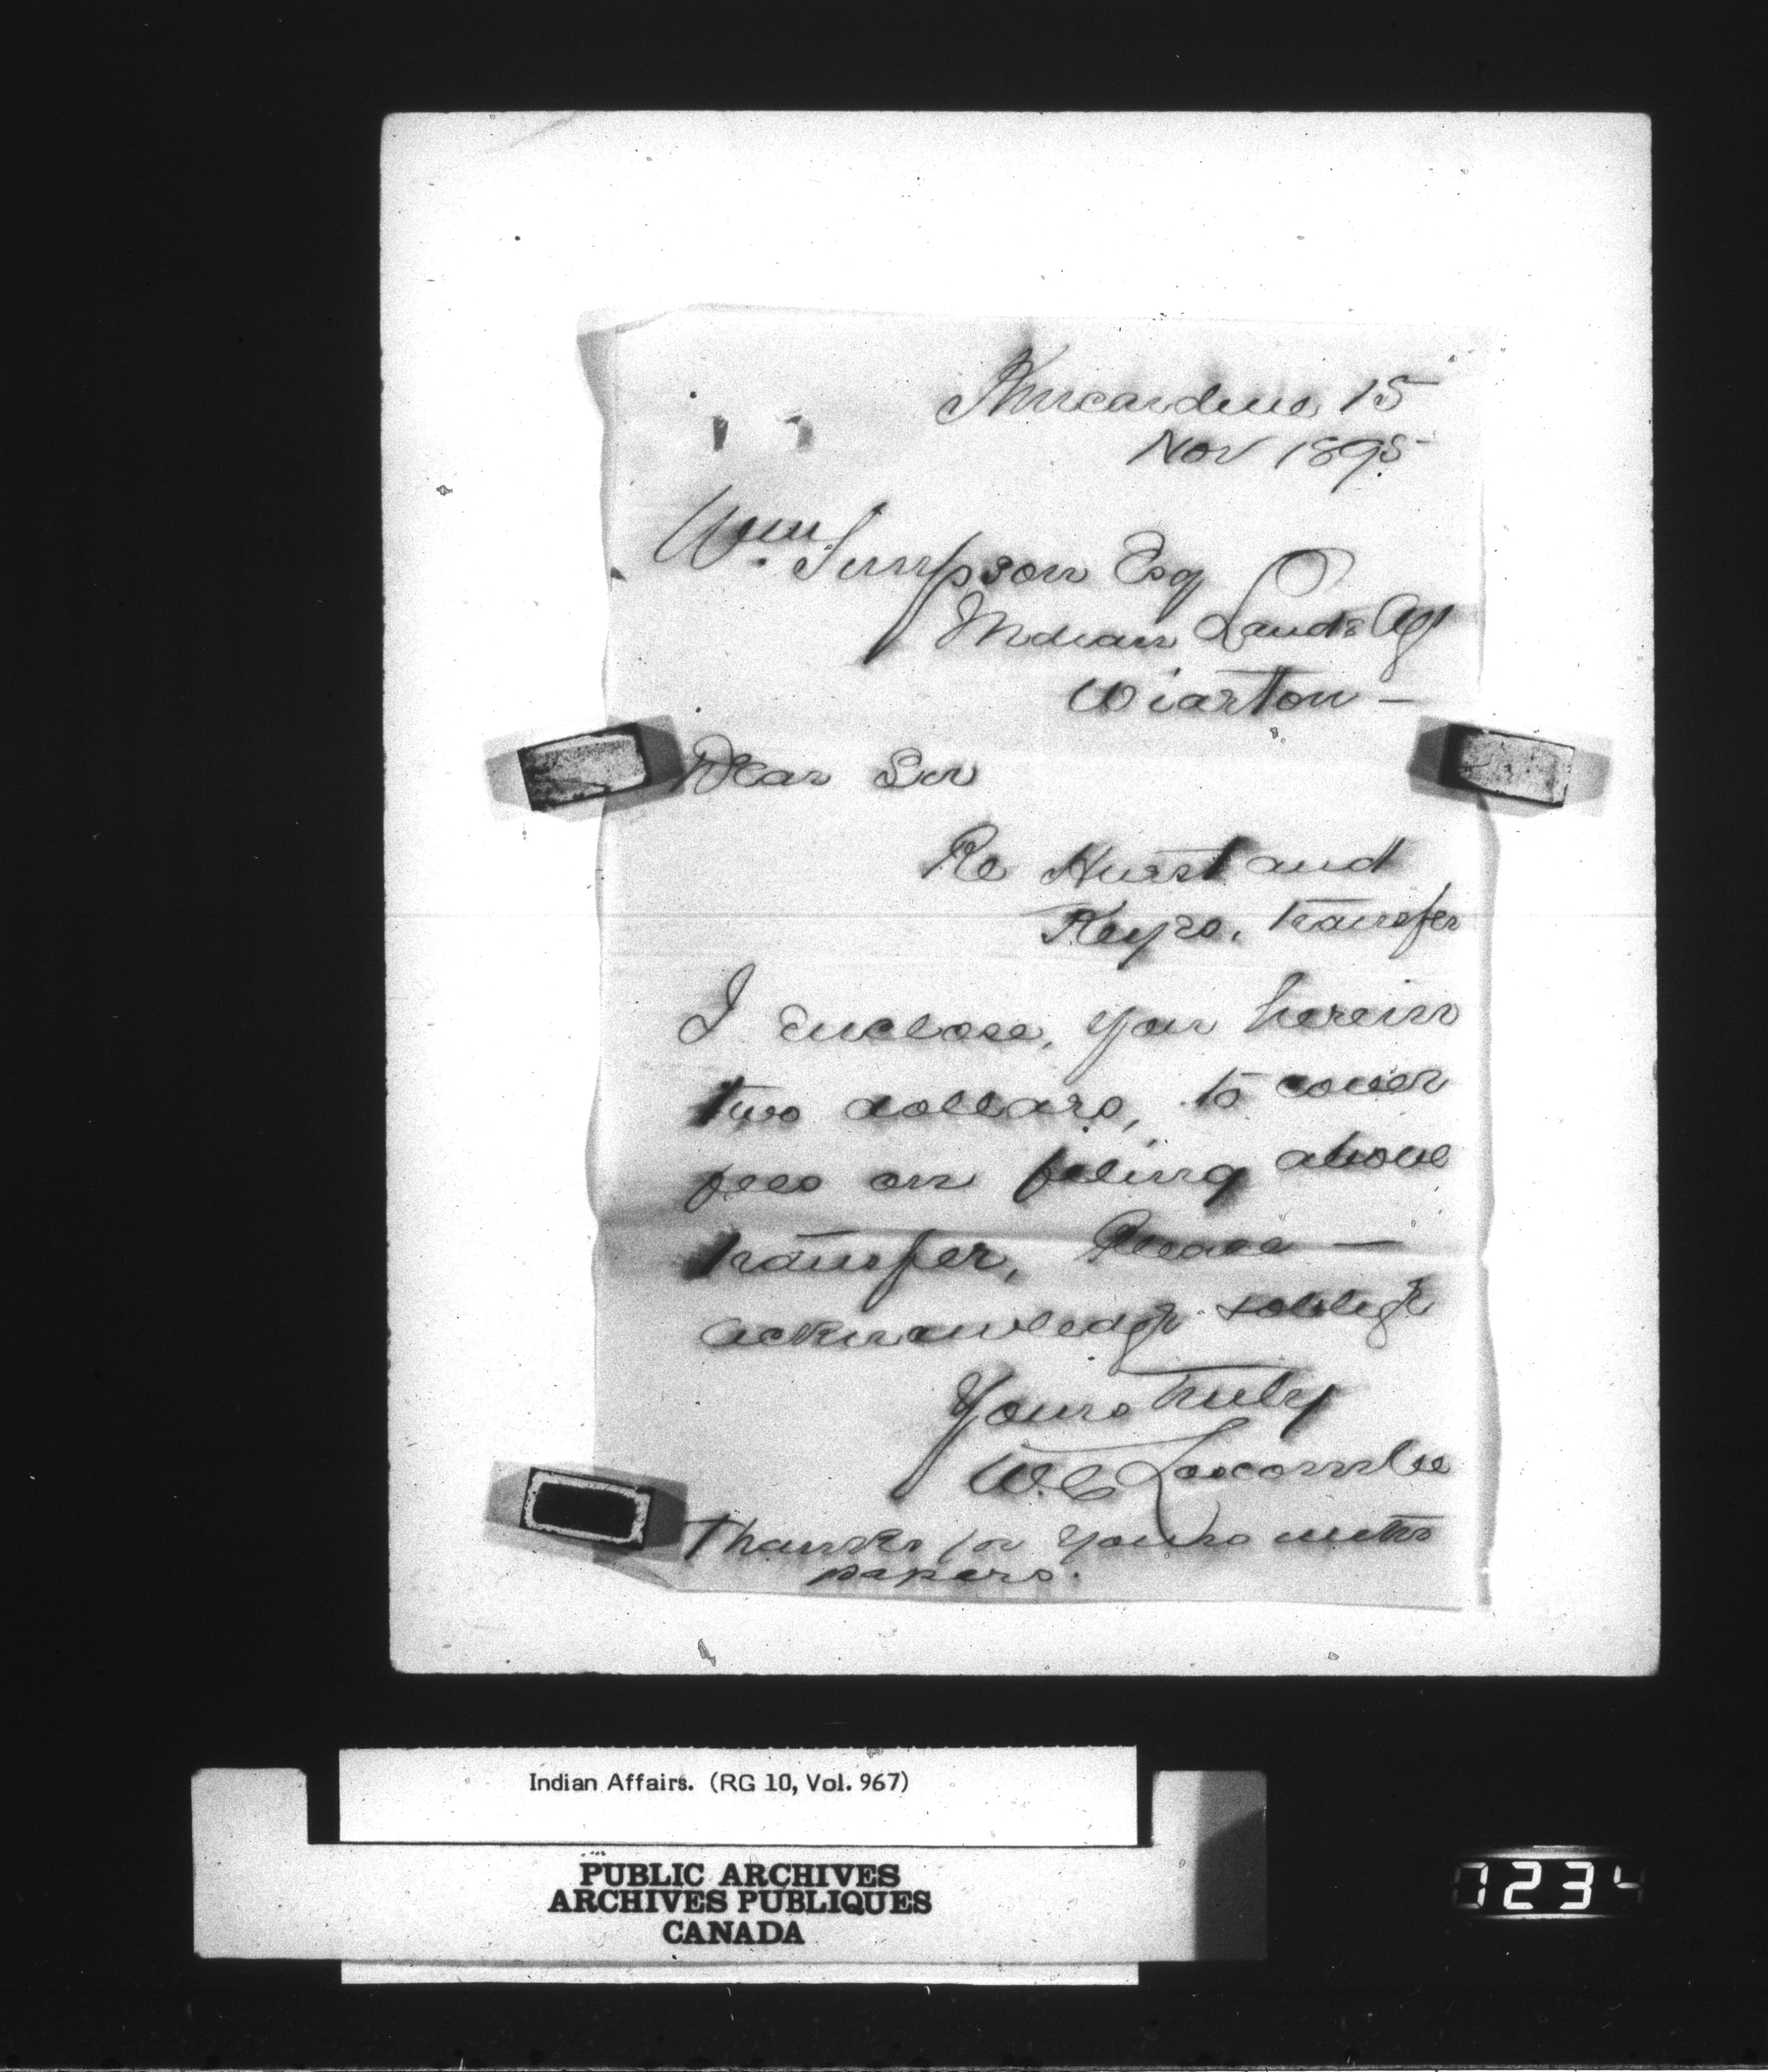 Kincardine 15
Nov 1895
Wm. Simpson Esq
Indian Lands Agt
Wiarton —
Dear Sir
Re Hurst and
Keyes, transfer
I enclose, you herein
two dollars, to cover
fees on filing above
transfer, Please —
acknowledge & oblige
Yours truly
W.C. Loscombe
Thanks for yours with
papers.
Indian Affairs. (RG 10, Vol. 967)
PUBLIC ARCHIVES
ARCHIVES PUBLIQUES
CANADA
0234